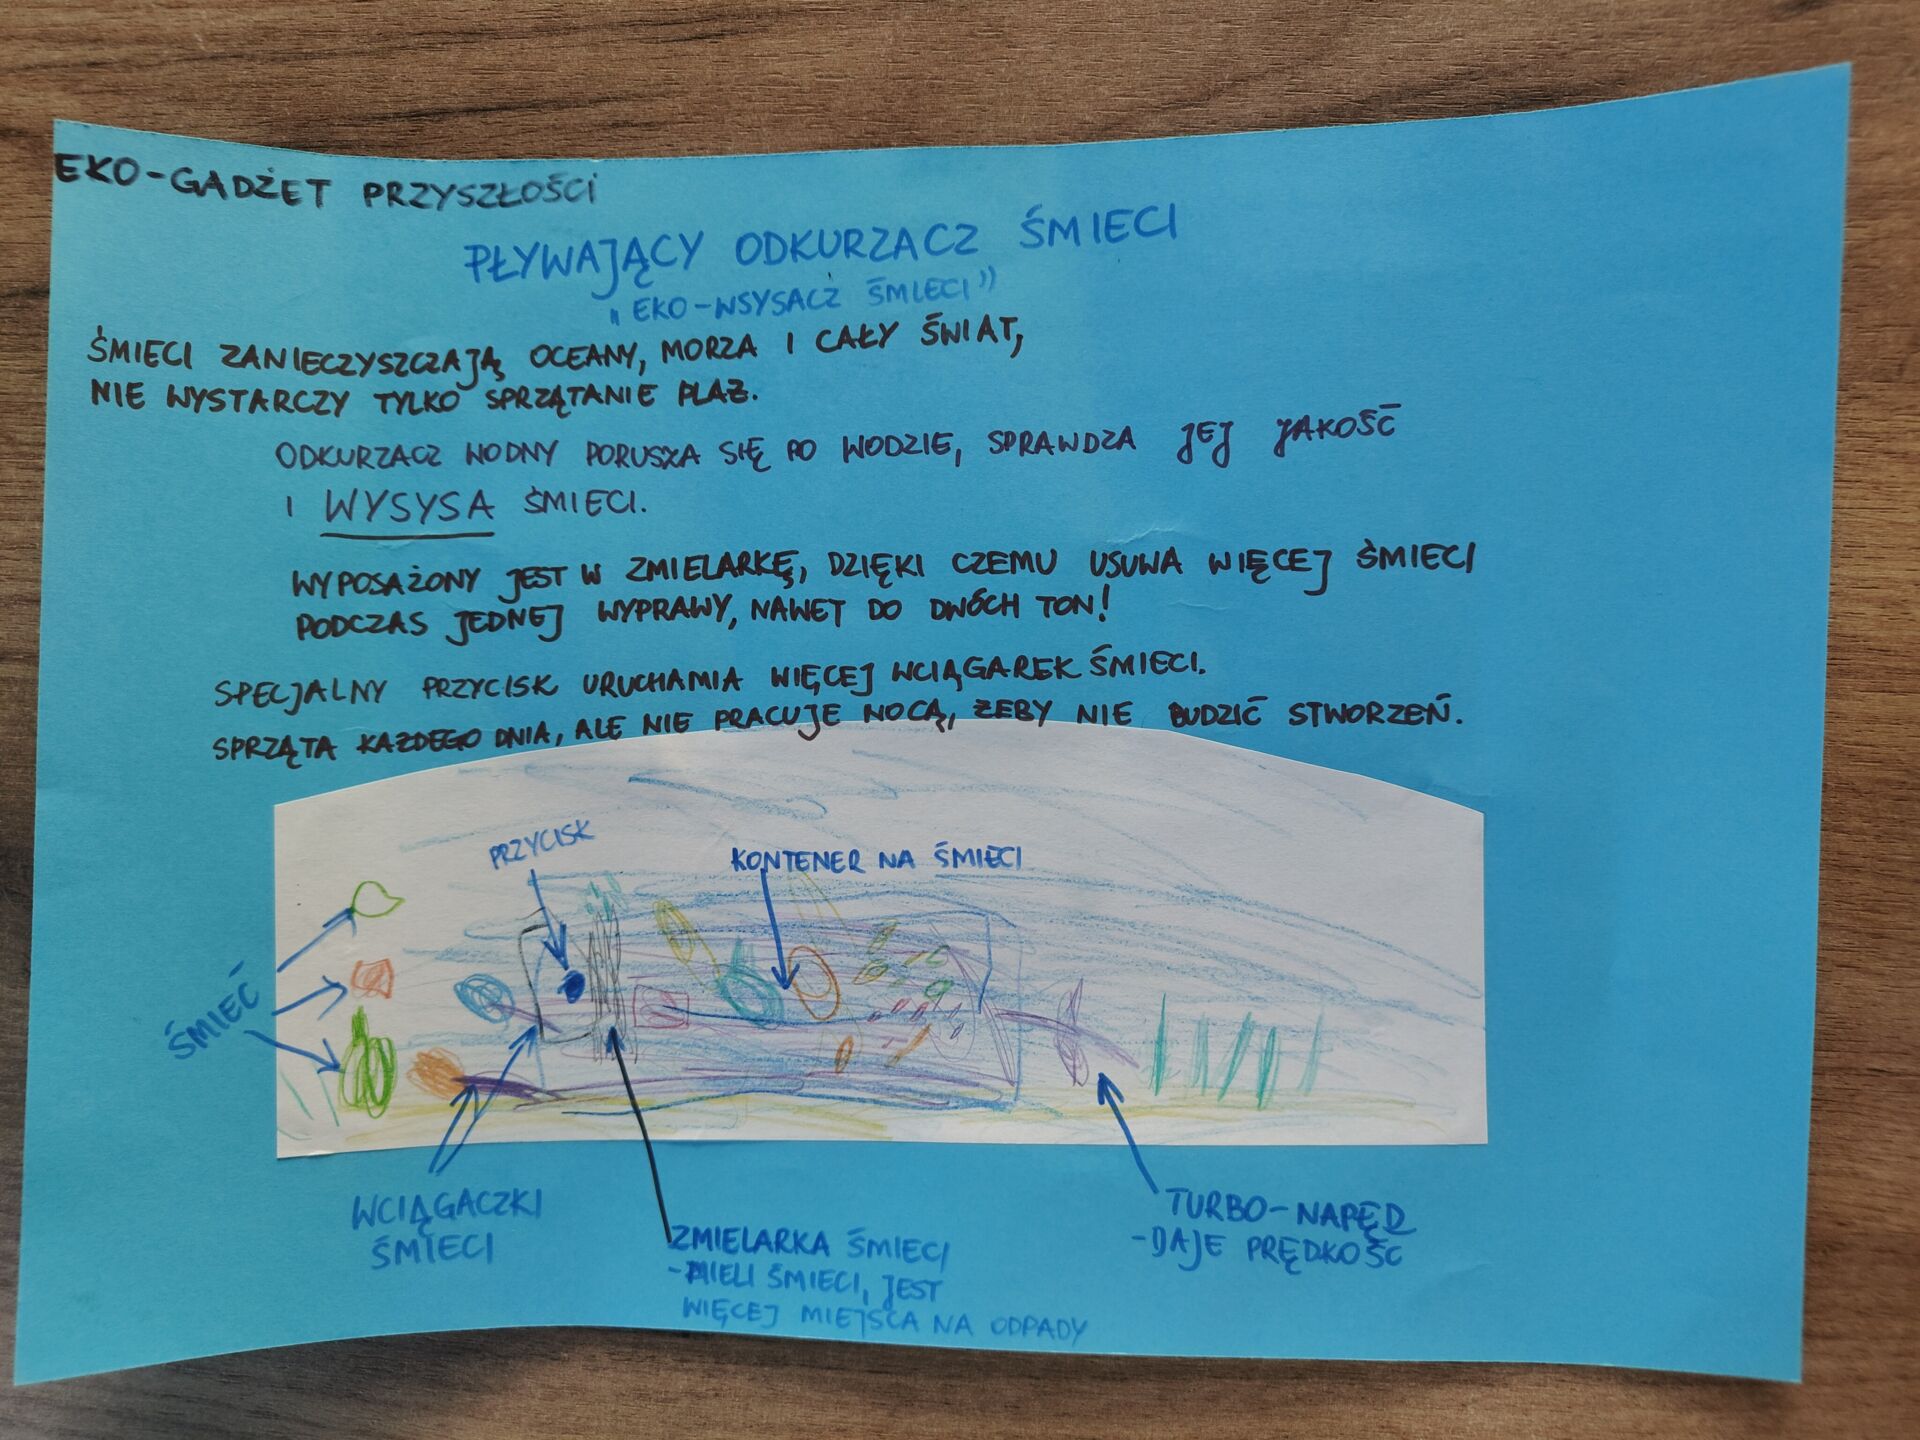 EKO-GADŻET PRZYSZŁOŚCI
PŁYWAJĄCY ODKURZACZ ŚMIECI
„EKO-WSYSACZ ŚMIECI”
ŚMIECI ZANIECZYSZCZAJĄ OCEANY, MORZA I CAŁY ŚWIAT,
NIE WYSTARCZY TYLKO SPRZĄTANIE PLAŻ.
ODKURZACZ WODNY PORUSZA SIĘ PO WODZIE, SPRAWDZA JEJ JAKOŚĆ
I WYSYSA ŚMIECI.
WYPOSAŻONY JEST W ZMIELARKĘ, DZIĘKI CZEMU USUWA WIĘCEJ ŚMIECI
PODCZAS JEDNEJ WYPRAWY, NAWET DO DWÓCH TON!
SPECJALNY PRZYCISK URUCHAMIA WIĘCEJ WCIĄGAREK ŚMIECI.
SPRZĄTA KAŻDEGO DNIA, ALE NIE PRACUJE NOCĄ, ŻEBY NIE BUDZIĆ STWORZEŃ.
PRZYCISK
KONTENER NA ŚMIECI
ŚMIEĆ
WCIĄGACZKI
ŚMIECI
ZMIELARKA ŚMIECI
-MIELI ŚMIECI, JEST
WIĘCEJ MIEJSCA NA ODPADY
TURBO-NAPĘD
-DAJE PRĘDKOŚĆ